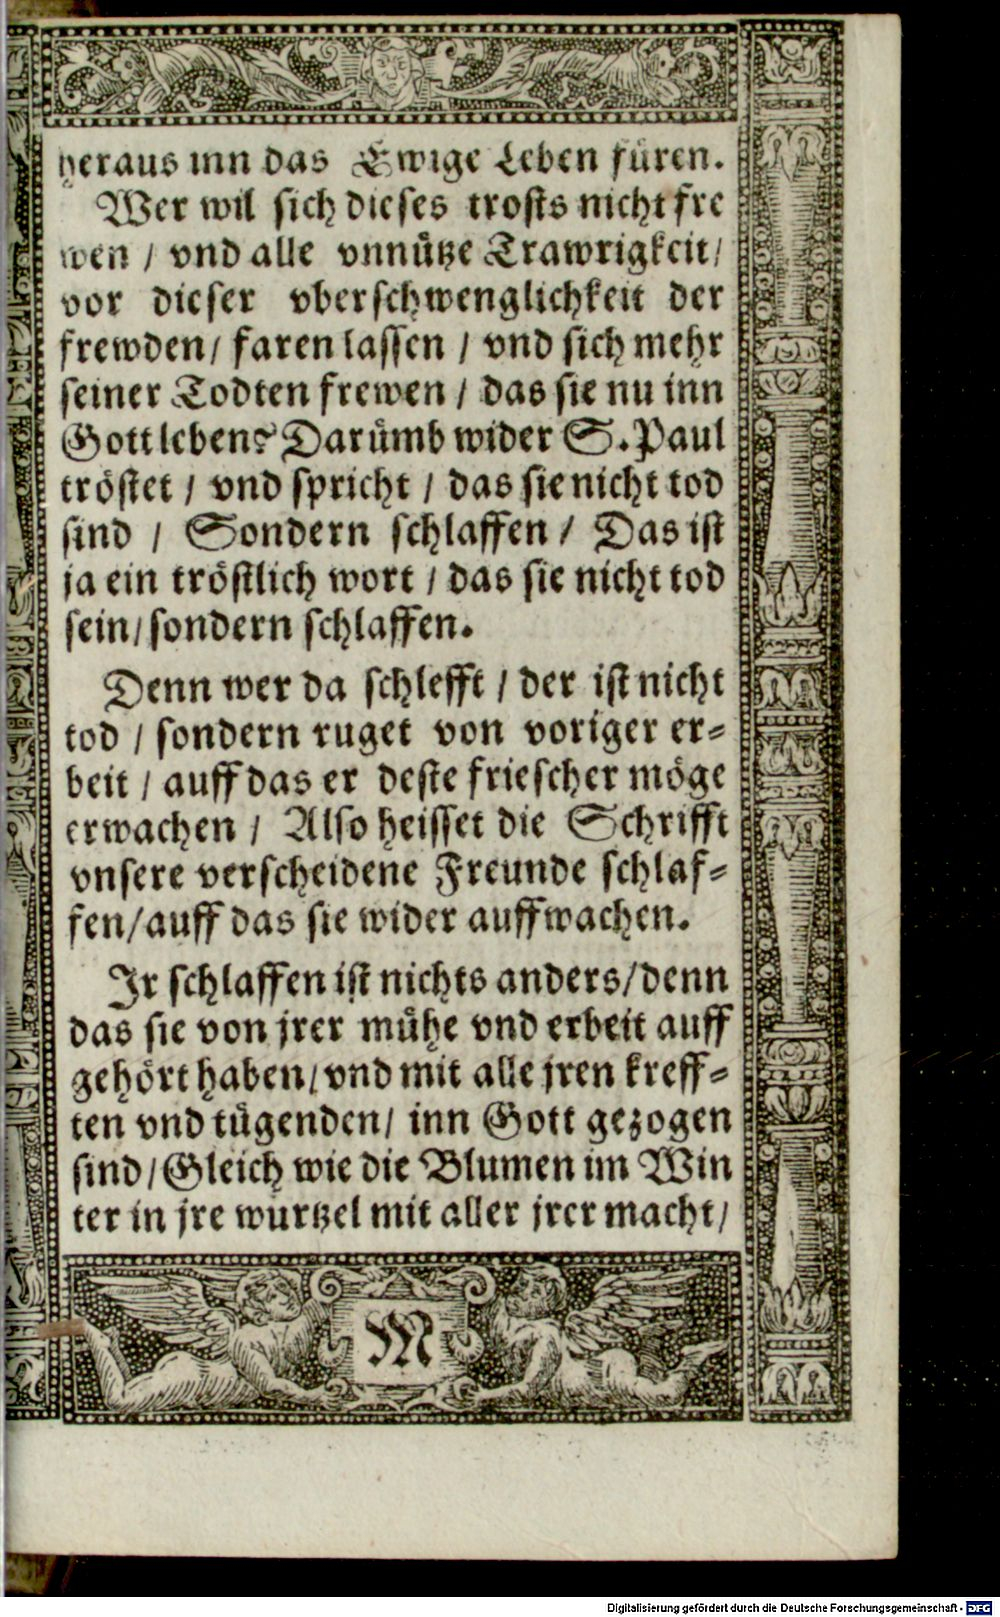 heraus inn das Ewige Leben füren.
Wer wil sich dieses trosts nicht fre
wen / vnd alle vnnütze Trawrigkeit /
vor dieser vberschwenglichkeit der
frewden / faren lassen / vnd sich mehr
seiner Todten frewen / das sie nu inn
Gott leben? Darümb wider S. Paul
tröstet / vnd spricht / das sie nicht tod
sind / Sondern schlaffen / Das ist
ja ein tröstlich wort / das sie nicht tod
sein / sondern schlaffen.
Denn wer da schlefft / der ist nicht
tod / sondern ruget von voriger er-
beit / auff das er deste friescher möge
erwachen / Also heisset die Schrifft
vnsere verscheidene Freunde schlaf-
fen / auff das sie wider auffwachen.
Jr schlaffen ist nichts anders / denn
das sie von jrer mühe vnd erbeit auff
gehört haben / vnd mit alle jren kreff-
ten vnd tügenden / inn Gott gezogen
sind / Gleich wie die Blumen im Win
ter in jre wurtzel mit aller jrer macht /
M
Digitalisierung gefördert durch die Deutsche Forschungsgemeinschaft - DFG